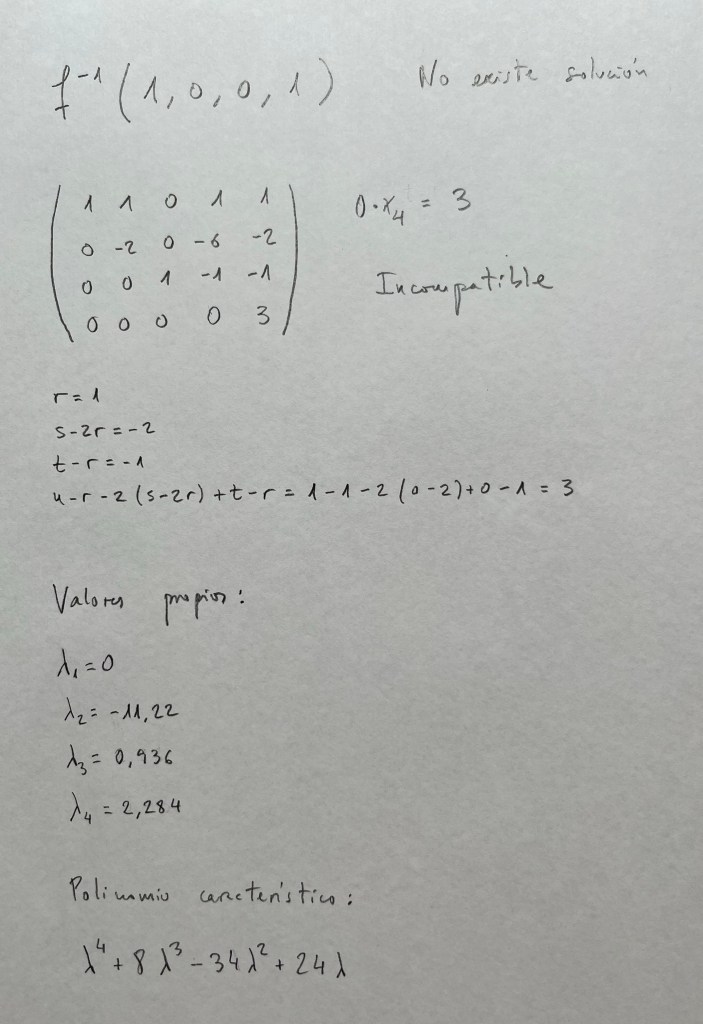 f⁻¹ (1, 0, 0, 1) No existe solución
1 1 0 1 1 0·x₄ = 3
0 -2 0 -6 -2
0 0 1 -1 -1 Incompatible
0 0 0 0 3
r = 1
s-2r = -2
t-r = -1
u-r-2(s-2r)+t-r = 1-1-2(0-2)+0-1 = 3
Valores propios:
λ₁ = 0
λ₂ = -11,22
λ₃ = 0,936
λ₄ = 2,284
Polinomio característico:
λ⁴ + 8λ³ - 34λ² + 24λ